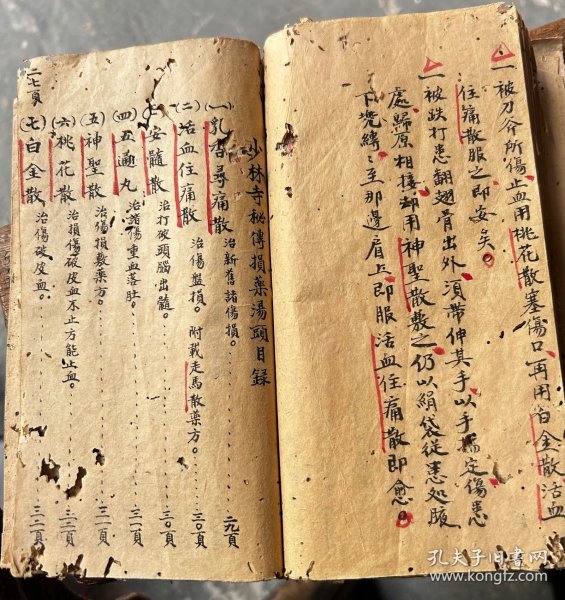 一被刀斧所傷止血用桃花散塞傷口再用白金散活血
住痛散服之即安矣。
一被跌打患翻翅骨出外須帶伸其手以手揣定傷患
處歸原相接却用神聖散敷之仍以絹袋從患处腋
下兠縛至那邊肩上即服活血住痛散即愈。
少林寺秘傳損藥湯頭目錄
(一)乳香尋痛散 治新舊諸傷損。 二九頁
(二)活血住痛散 治傷盤損。附載走馬散藥方。 三〇頁
安髓散 治打破頭腦出髓。 三〇頁
(四)五通丸 治諸傷重血落肚。 三一頁
(五)神聖散 治傷損敷藥方。 三一頁
(六)桃花散 治損傷破皮血不止方能止血。 三二頁
(七)白金散 治傷破皮血。 三二頁
二七頁
孔夫子旧書网
www.kongfz.com